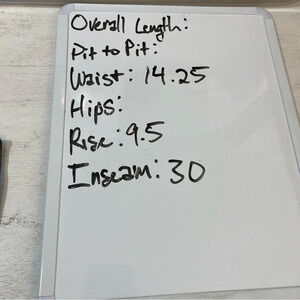 Overall Length:
Pit to Pit:
Waist: 14.25
Hips:
Rise: 9.5
Inseam: 30